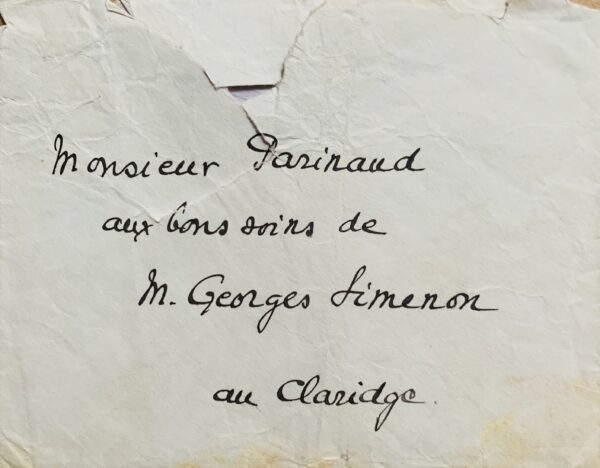 Monsieur Parinaud
aux bons soins de
M. Georges Simenon
au Claridge.